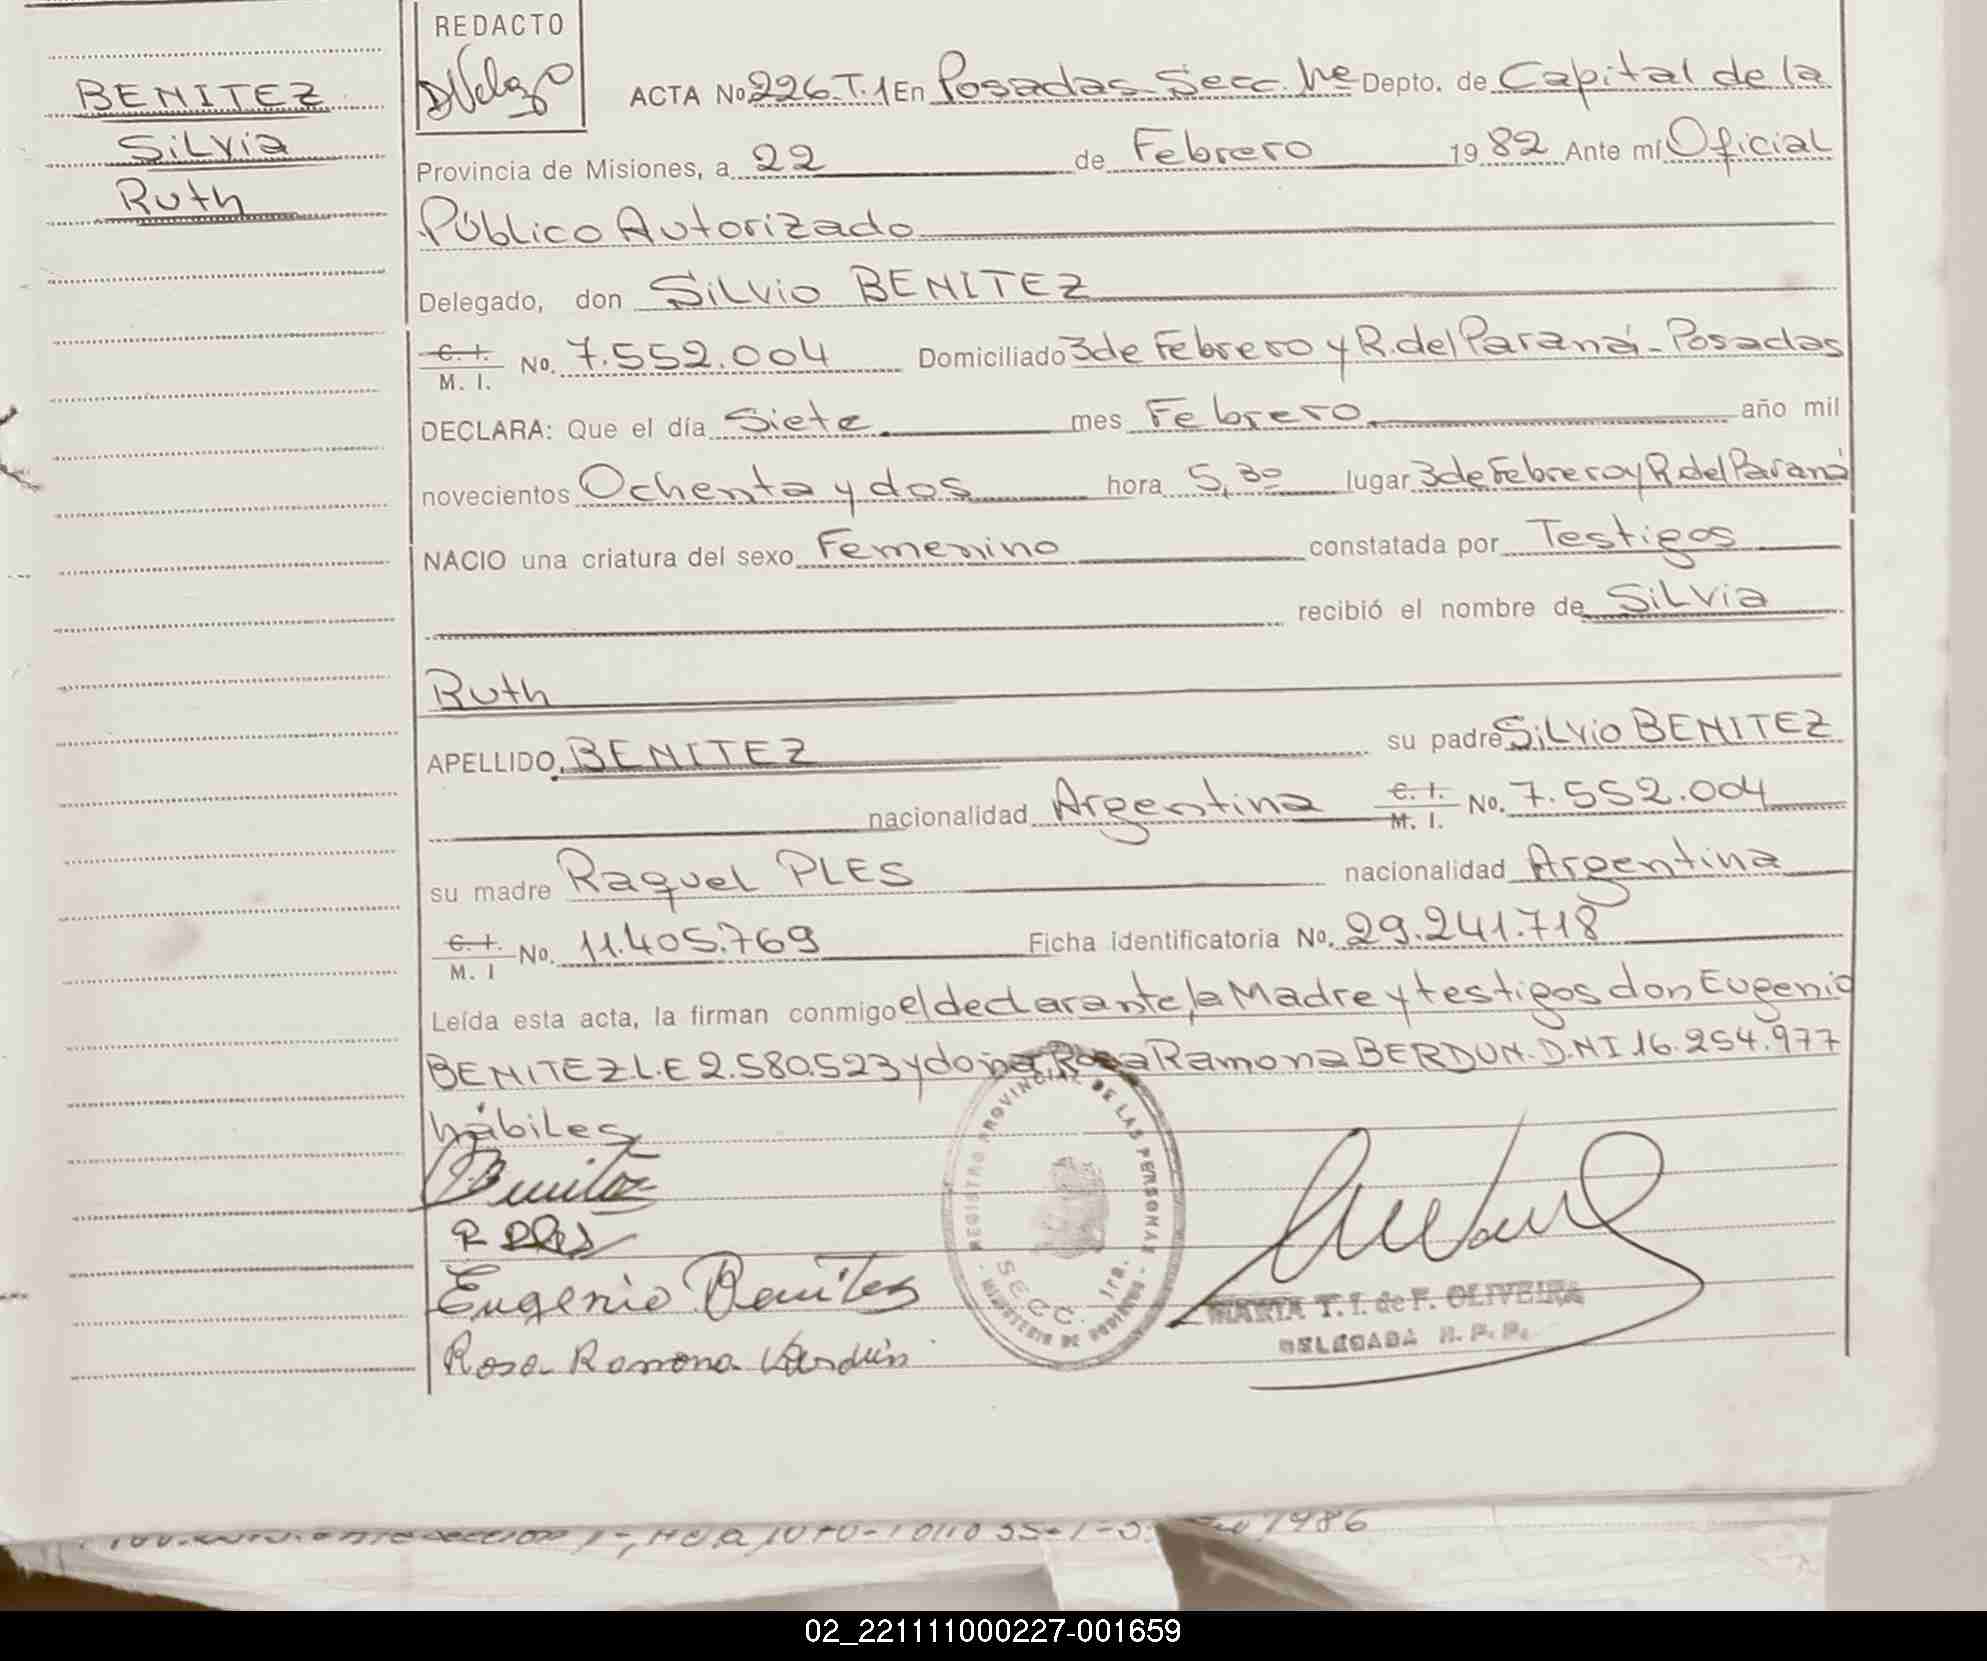 BENITEZ
Silvia
Ruth
REDACTO
ACTA No 226.T.1 En Posadas Secc. 1ra Depto. de Capital de la
Provincia de Misiones, a 22 de Febrero 1982 Ante mí Oficial
Público Autorizado
Delegado, don Silvio BENITEZ
C. I. M. I. No. 7.552.004 Domiciliado 3 de Febrero y R. del Paraná - Posadas
DECLARA: Que el día Siete mes Febrero año mil
novecientos Ochenta y dos hora 5,30 lugar 3 de Febrero y R. del Paraná
NACIO una criatura del sexo Femenino constatada por Testigos
recibió el nombre de Silvia
Ruth
APELLIDO, BENITEZ su padre Silvio BENITEZ
nacionalidad Argentina C. I. M. I. No. 7.552.004
su madre Raquel PLES nacionalidad Argentina
C. I. M. I No. 11.405.769 Ficha identificatoria No. 29.241.718
Leída esta acta, la firman conmigo el declarante, la Madre y testigos don Eugenio
BENITEZ L.E 2.580.523 y doña Rosa Ramona BERDUN. D.N.I 16.254.977
hábiles
Benitez
R Ples
Eugenio Benitez
Rosa Ramona Verdún
REGISTRO PROVINCIAL DE LAS PERSONAS
SECC. 1ra.
MINISTERIO DE GOBIERNO
MARTA T. I. de F. OLIVEIRA
DELEGADA R. P. P.
1986
02_221111000227-001659